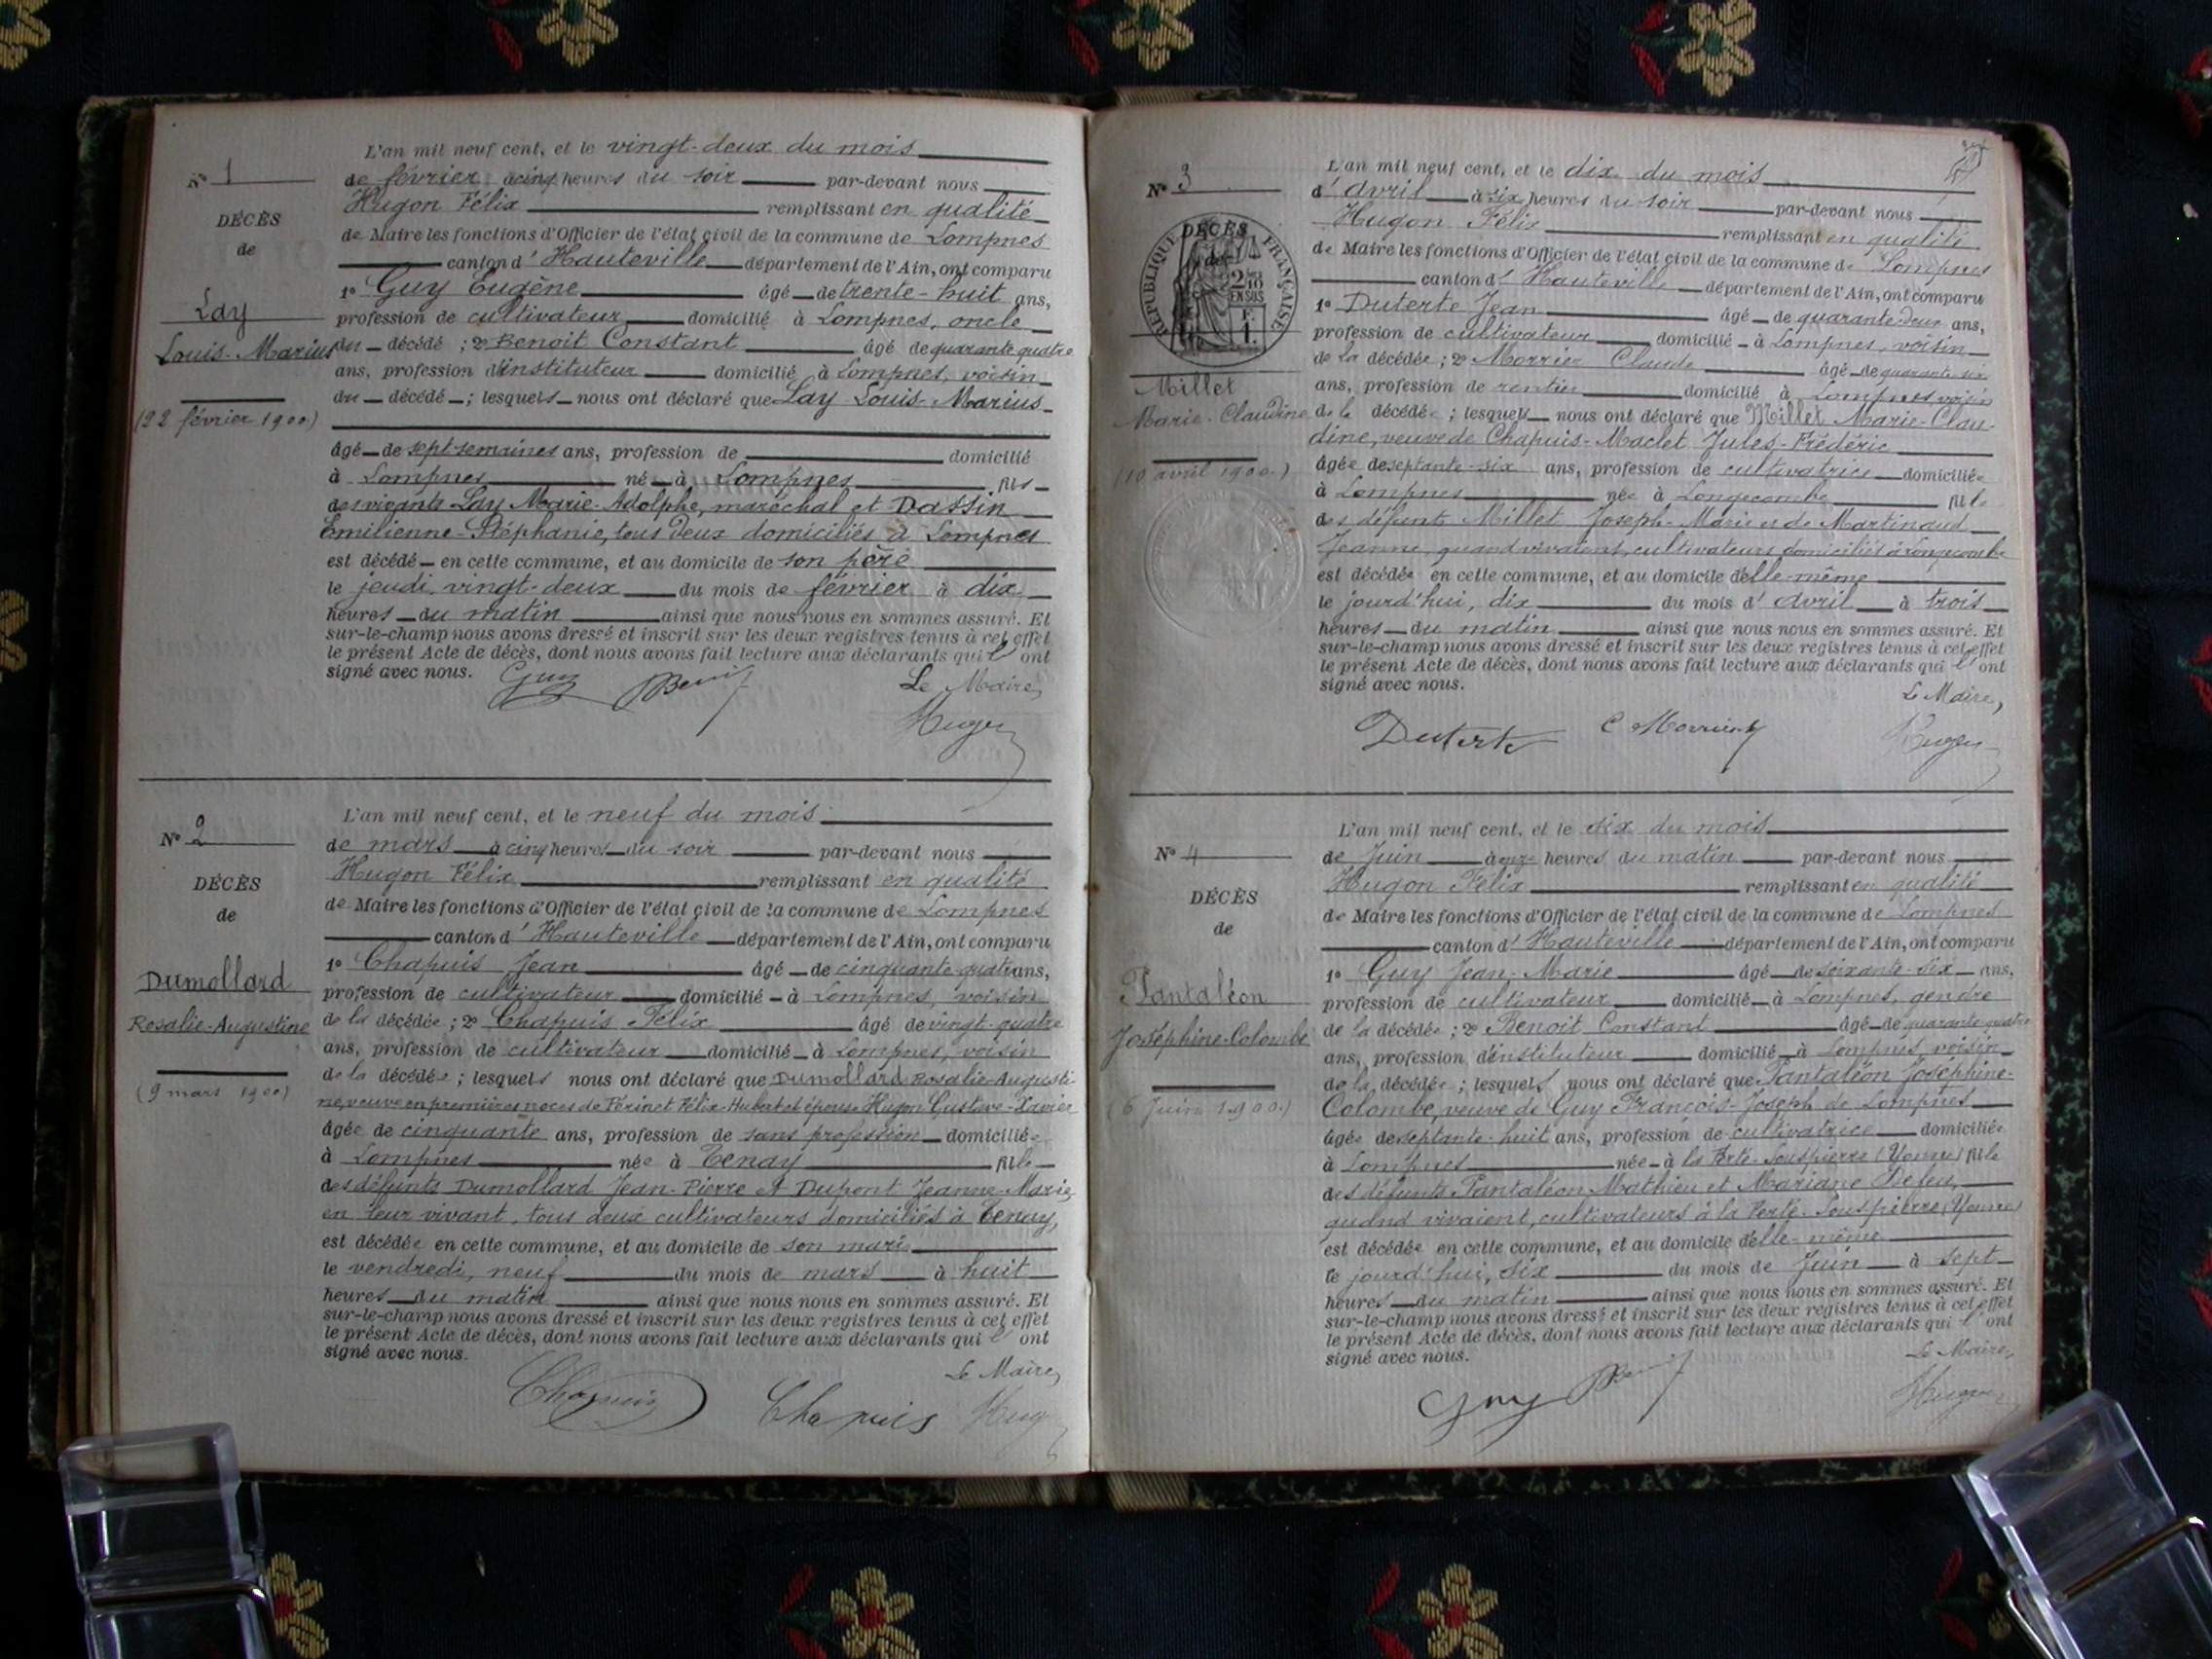 N° 1
DÉCÈS
de
Lay
Louis-Marius
(22 février 1900)
L'an mil neuf cent, et le vingt-deux du mois
de février à cinq heures du soir par-devant nous
Hugon Félix remplissant en qualité
de Maire les fonctions d'Officier de l'état civil de la commune de Lompnes
canton d'Hauteville département de l'Ain, ont comparu
1° Guy Eugène âgé de trente-huit ans,
profession de cultivateur domicilié à Lompnes, oncle
du décédé ; 2° Benoit Constant âgé de quarante quatre
ans, profession d'instituteur domicilié à Lompnes, voisin
du décédé ; lesquels nous ont déclaré que Lay Louis-Marius
âgé de sept semaines ans, profession de domicilié
à Lompnes né à Lompnes fils
des vivants Lay Marie-Adolphe, maréchal et Dassin
Emilienne-Stéphanie, tous deux domiciliés à Lompnes
est décédé en cette commune, et au domicile de son père
le jeudi vingt-deux du mois de février à dix
heures du matin ainsi que nous nous en sommes assuré. Et
sur-le-champ nous avons dressé et inscrit sur les deux registres tenus à cet effet
le présent Acte de décès, dont nous avons fait lecture aux déclarants qui l'ont
signé avec nous.
Le Maire,
Guy Benoit
Hugon
N° 2
DÉCÈS
de
Dumollard
Rosalie-Augustine
(9 mars 1900)
L'an mil neuf cent, et le neuf du mois
de mars à cinq heures du soir par-devant nous
Hugon Félix remplissant en qualité
de Maire les fonctions d'Officier de l'état civil de la commune de Lompnes
canton d'Hauteville département de l'Ain, ont comparu
1° Chapuis Jean âgé de cinquante-quatre ans,
profession de cultivateur domicilié à Lompnes, voisin
de la décédée ; 2° Chapuis Félix âgé de vingt-quatre
ans, profession de cultivateur domicilié à Lompnes, voisin
de la décédée ; lesquels nous ont déclaré que Dumollard Rosalie-Augusti-
ne, veuve en premières noces de Périnet Félix-Hubert et épouse Hugon Gustave-Xavier
âgée de cinquante ans, profession de sans profession domiciliée
à Lompnes née à Tenay fille
des défunts Dumollard Jean-Pierre et Dupont Jeanne-Marie,
en leur vivant, tous deux cultivateurs domiciliés à Tenay,
est décédée en cette commune, et au domicile de son mari
le vendredi, neuf du mois de mars à huit
heures du matin ainsi que nous nous en sommes assuré. Et
sur-le-champ nous avons dressé et inscrit sur les deux registres tenus à cet effet
le présent Acte de décès, dont nous avons fait lecture aux déclarants qui l'ont
signé avec nous.
Le Maire,
Chapuis Chapuis Hugon
N° 3
DÉCÈS
de
RÉPUBLIQUE FRANÇAISE
2/10
EN SUS
F.
1.
Millet
Marie-Claudine
(10 avril 1900)
L'an mil neuf cent, et le dix du mois
d'avril à six heures du soir par-devant nous
Hugon Félix remplissant en qualité
de Maire les fonctions d'Officier de l'état civil de la commune de Lompnes
canton d'Hauteville département de l'Ain, ont comparu
1° Duterte Jean âgé de quarante-deux ans,
profession de cultivateur domicilié à Lompnes, voisin
de la décédée ; 2° Morrier Claude âgé de quarante six
ans, profession de rentier domicilié à Lompnes voisin
de la décédée ; lesquels nous ont déclaré que Millet Marie-Clau-
dine, veuve de Chapuis-Maclet Jules-Frédéric
âgée de septante-six ans, profession de cultivatrice domiciliée
à Lompnes née à Longecombe fille
des défunts Millet Joseph-Marie et de Martinaud
Jeanne, quand vivaient cultivateurs domiciliés à Longecombe
est décédée en cette commune, et au domicile d'elle-même
le jourd'hui, dix du mois d'avril à trois
heures du matin ainsi que nous nous en sommes assuré. Et
sur-le-champ nous avons dressé et inscrit sur les deux registres tenus à cet effet
le présent Acte de décès, dont nous avons fait lecture aux déclarants qui l'ont
signé avec nous.
Le Maire,
Duterte C Morrier
Hugon
N° 4
DÉCÈS
de
Pantaléon
Joséphine-Colombe
(6 Juin 1900)
L'an mil neuf cent, et le six du mois
de Juin à onze heures du matin par-devant nous
Hugon Félix remplissant en qualité
de Maire les fonctions d'Officier de l'état civil de la commune de Lompnes
canton d'Hauteville département de l'Ain, ont comparu
1° Guy Jean-Marie âgé de soixante-six ans,
profession de cultivateur domicilié à Lompnes, gendre
de la décédée ; 2° Benoit Constant âgé de quarante quatre
ans, profession d'instituteur domicilié à Lompnes voisin
de la décédée ; lesquels nous ont déclaré que Pantaléon Joséphine-
Colombe, veuve de Guy François-Joseph de Lompnes
âgée de septante-huit ans, profession de cultivatrice domiciliée
à Lompnes née à la Ferté-Souspierre (Yonne) fille
des défunts Pantaléon Mathieu et Mariane
quand vivaient, cultivateurs à la Ferté-Souspierre (Yonne)
est décédée en cette commune, et au domicile d'elle-même
le jourd'hui, six du mois de Juin à sept
heures du matin ainsi que nous nous en sommes assuré. Et
sur-le-champ nous avons dressé et inscrit sur les deux registres tenus à cet effet
le présent Acte de décès, dont nous avons fait lecture aux déclarants qui l'ont
signé avec nous.
Le Maire,
Guy Benoit
Hugon